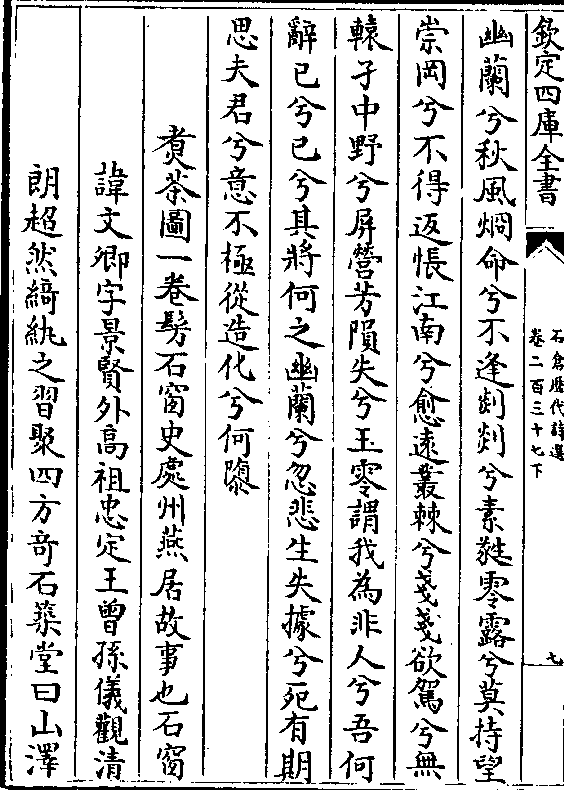 欽定四庫全書
石倉歷代詩選
卷二百三十七下
七
幽蘭兮秋風烱命兮不逢剡剡兮素㲯零露兮莫持望
崇岡兮不得返悵江南兮愈遠叢棘兮戔戔欲駕兮無
轅孑中野兮屏營芳隕失兮玉零謂我為非人兮吾何
辭已兮已兮其將何之幽蘭兮忽悲生失據兮死有期
思夫君兮意不極從造化兮何隳
煑茶圖一卷髣石窗史處州燕居故事也石窗
諱文卿字景賢外高祖忠定王曾孫儀觀清
朗超然綺紈之習聚四方竒石築堂曰山澤